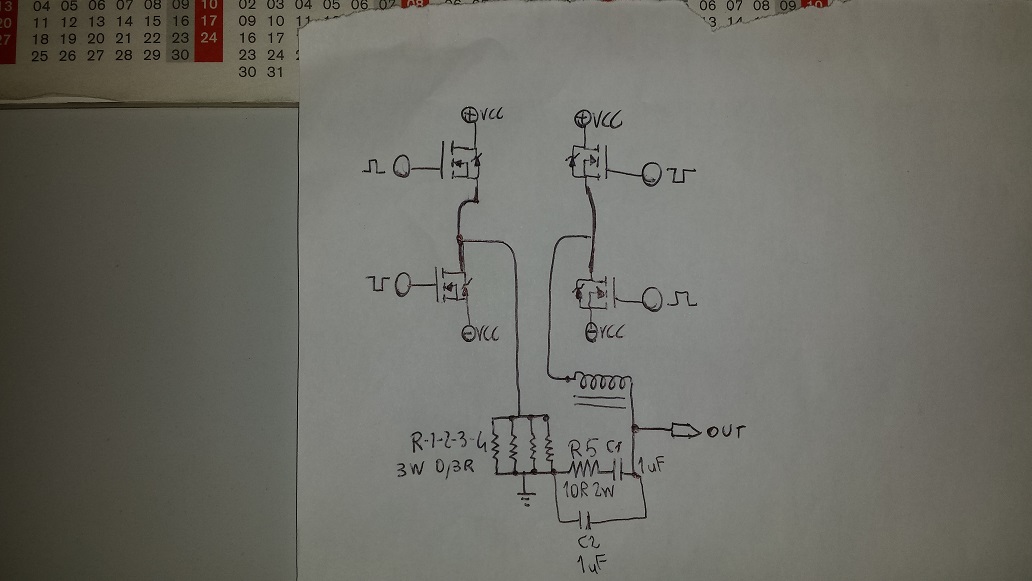 13 04 05 06 07 08 09 10
20 11 12 13 14 15 16 17
27 18 19 20 21 22 23 24
25 26 27 28 29 30
02 03 04 05 06 07 08
09 10 11
16 17
23 24
30 31
06 07 08 09 10
13 14
⊕VCC
⊕VCC
⊖VCC
⊖VCC
R-1-2-3-4
3W 0,3R
R5 C1
1uF
10R 2W
OUT
C2
1uF